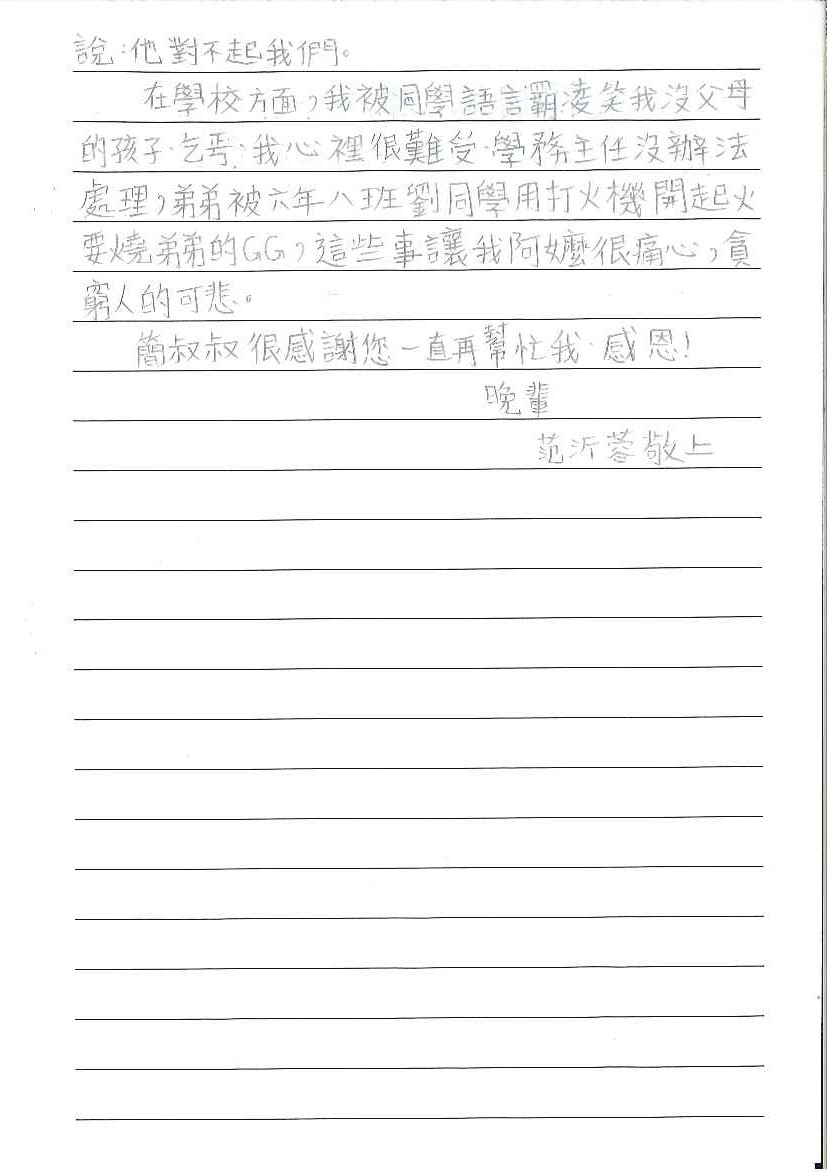 說:他對不起我們。
在學校方面,我被同學語言霸凌笑我沒父母
的孩子.乞丐.我心裡很難受.學務主任沒辦法
處理,弟弟被六年八班劉同學用打火機開起火
要燒弟弟的GG,這些事讓我阿嬤很痛心,貪
窮人的可悲。
簡叔叔很感謝您一直再幫忙我.感恩!
晚輩
范沂蓉敬上